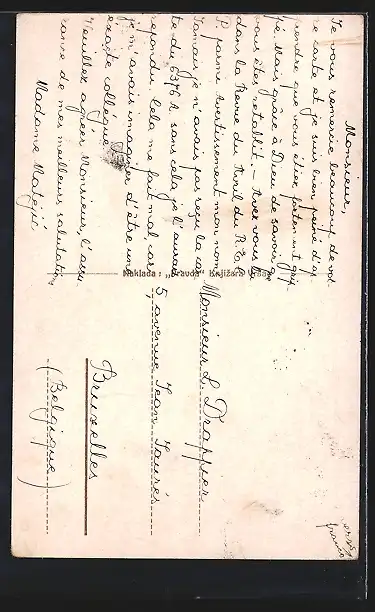 Monsieur,
Je vous remercie beaucoup de vot-
re carte et je suis bien peiné d'ap-
prendre que vous étiez fortement grip-
pé. Mais grâce à Dieu de savoir que
vous êtes rétablit. - Avez vous lu
dans la Revue du Avril du R.E.
P. parmi avertissement mon nom.
Jamais je n'avais pas reçu la car-
te du 6376 R, sans cela je l'aurais
répondu. Cela me fait mal, car
je m'avais imaginer d'être une
éxacte collègue.
Veuillez agréer Monsieur, l'assu-
rance de mes meilleurs salutations
Madame Matejić
Naklada: „Pravda" Knjižara Vršac
Monsieur L. Drappier
5, avenue Jean Jaurès
Bruxelles
(Belgique)